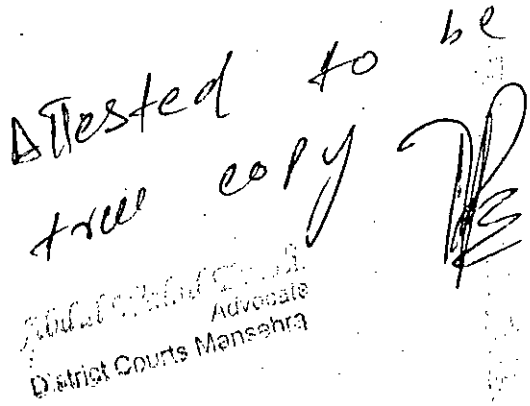 Attested to be
true copy
Abdul
Advocate
District Courts Mansehra